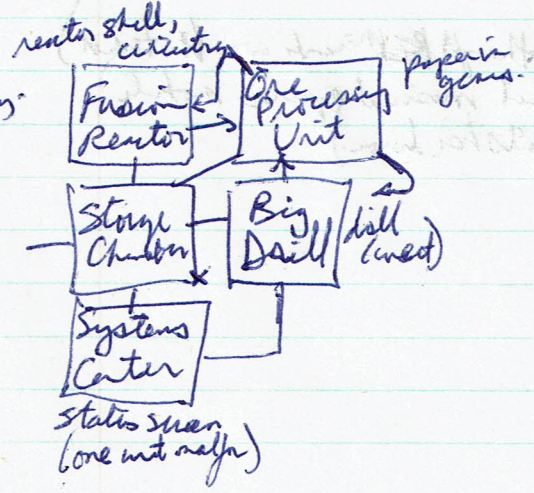 reactor shell,
circuitry
Fusion
Reactor
Ore
Processing
Unit
paper in
gears.
Storge
Chamber
Big
Drill
drill
Systems
Center
status screen
(one unit malfn)